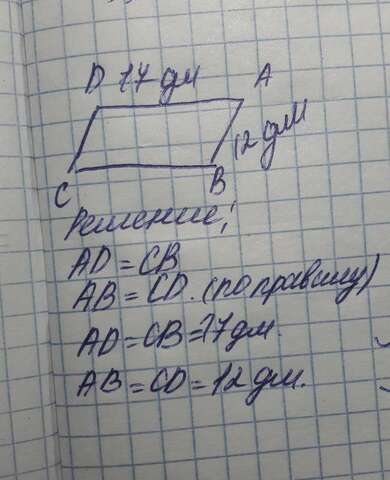 D 17 дм A
12 дм
C B
Решение;
AD = CB
AB = CD. (по правилу)
AD = CB = 17 дм.
AB = CD = 12 дм.